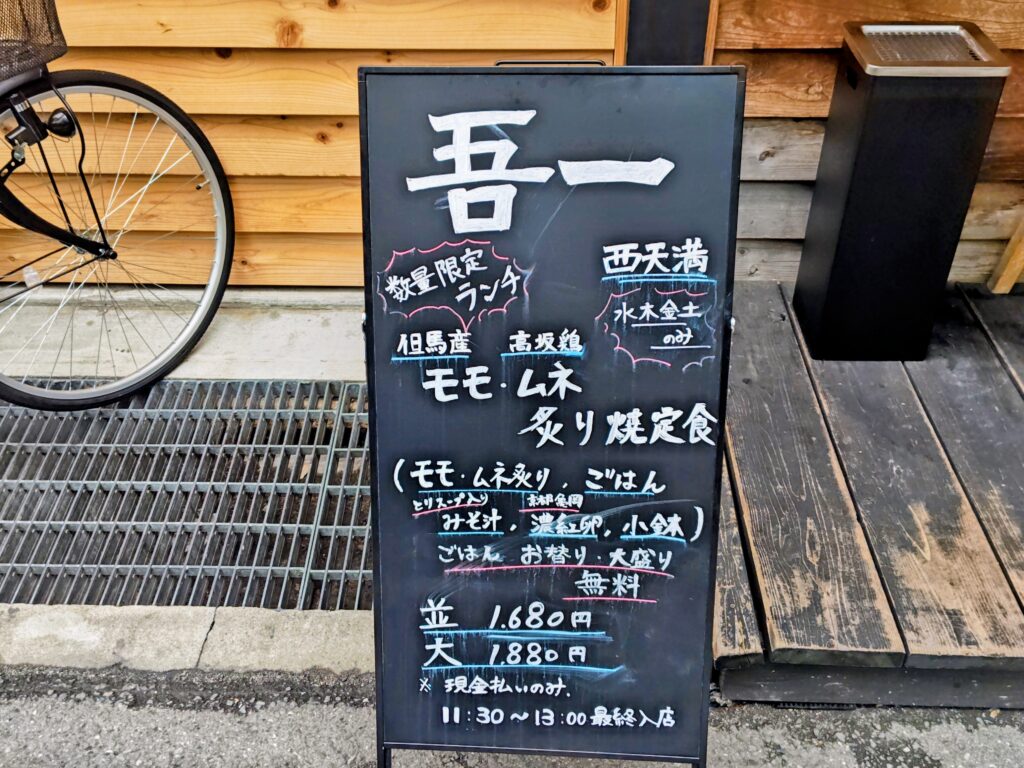 吾一
数量限定
ランチ
西天満
水木金土
のみ
但馬産 高坂鶏
モモ・ムネ
炙り焼定食
(モモ・ムネ炙り, ごはん
とりスープ入り
みそ汁, 濃紅卵, 小鉢)
ごはん お替り・大盛り
無料
並 1.680円
大 1.880円
※ 現金払いのみ.
11:30〜13:00 最終入店